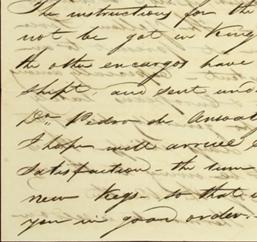 The instructions for the
not be got in King
the other encargos have
shipt and sent und
Dn. Pedro de
I hope will arrive
satisfaction - the rum
new Kegs - so that
you in good order. -